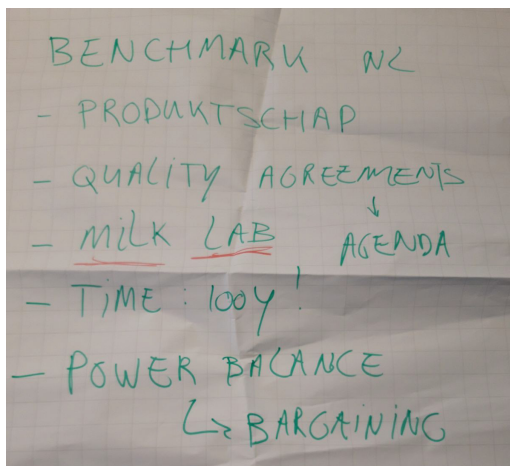 BENCHMARK NL
- PRODUKTSCHAP
- QUALITY AGREEMENTS
↓
- MILK LAB AGENDA
- TIME : 100Y !
- POWER BALANCE
↳ BARGAINING